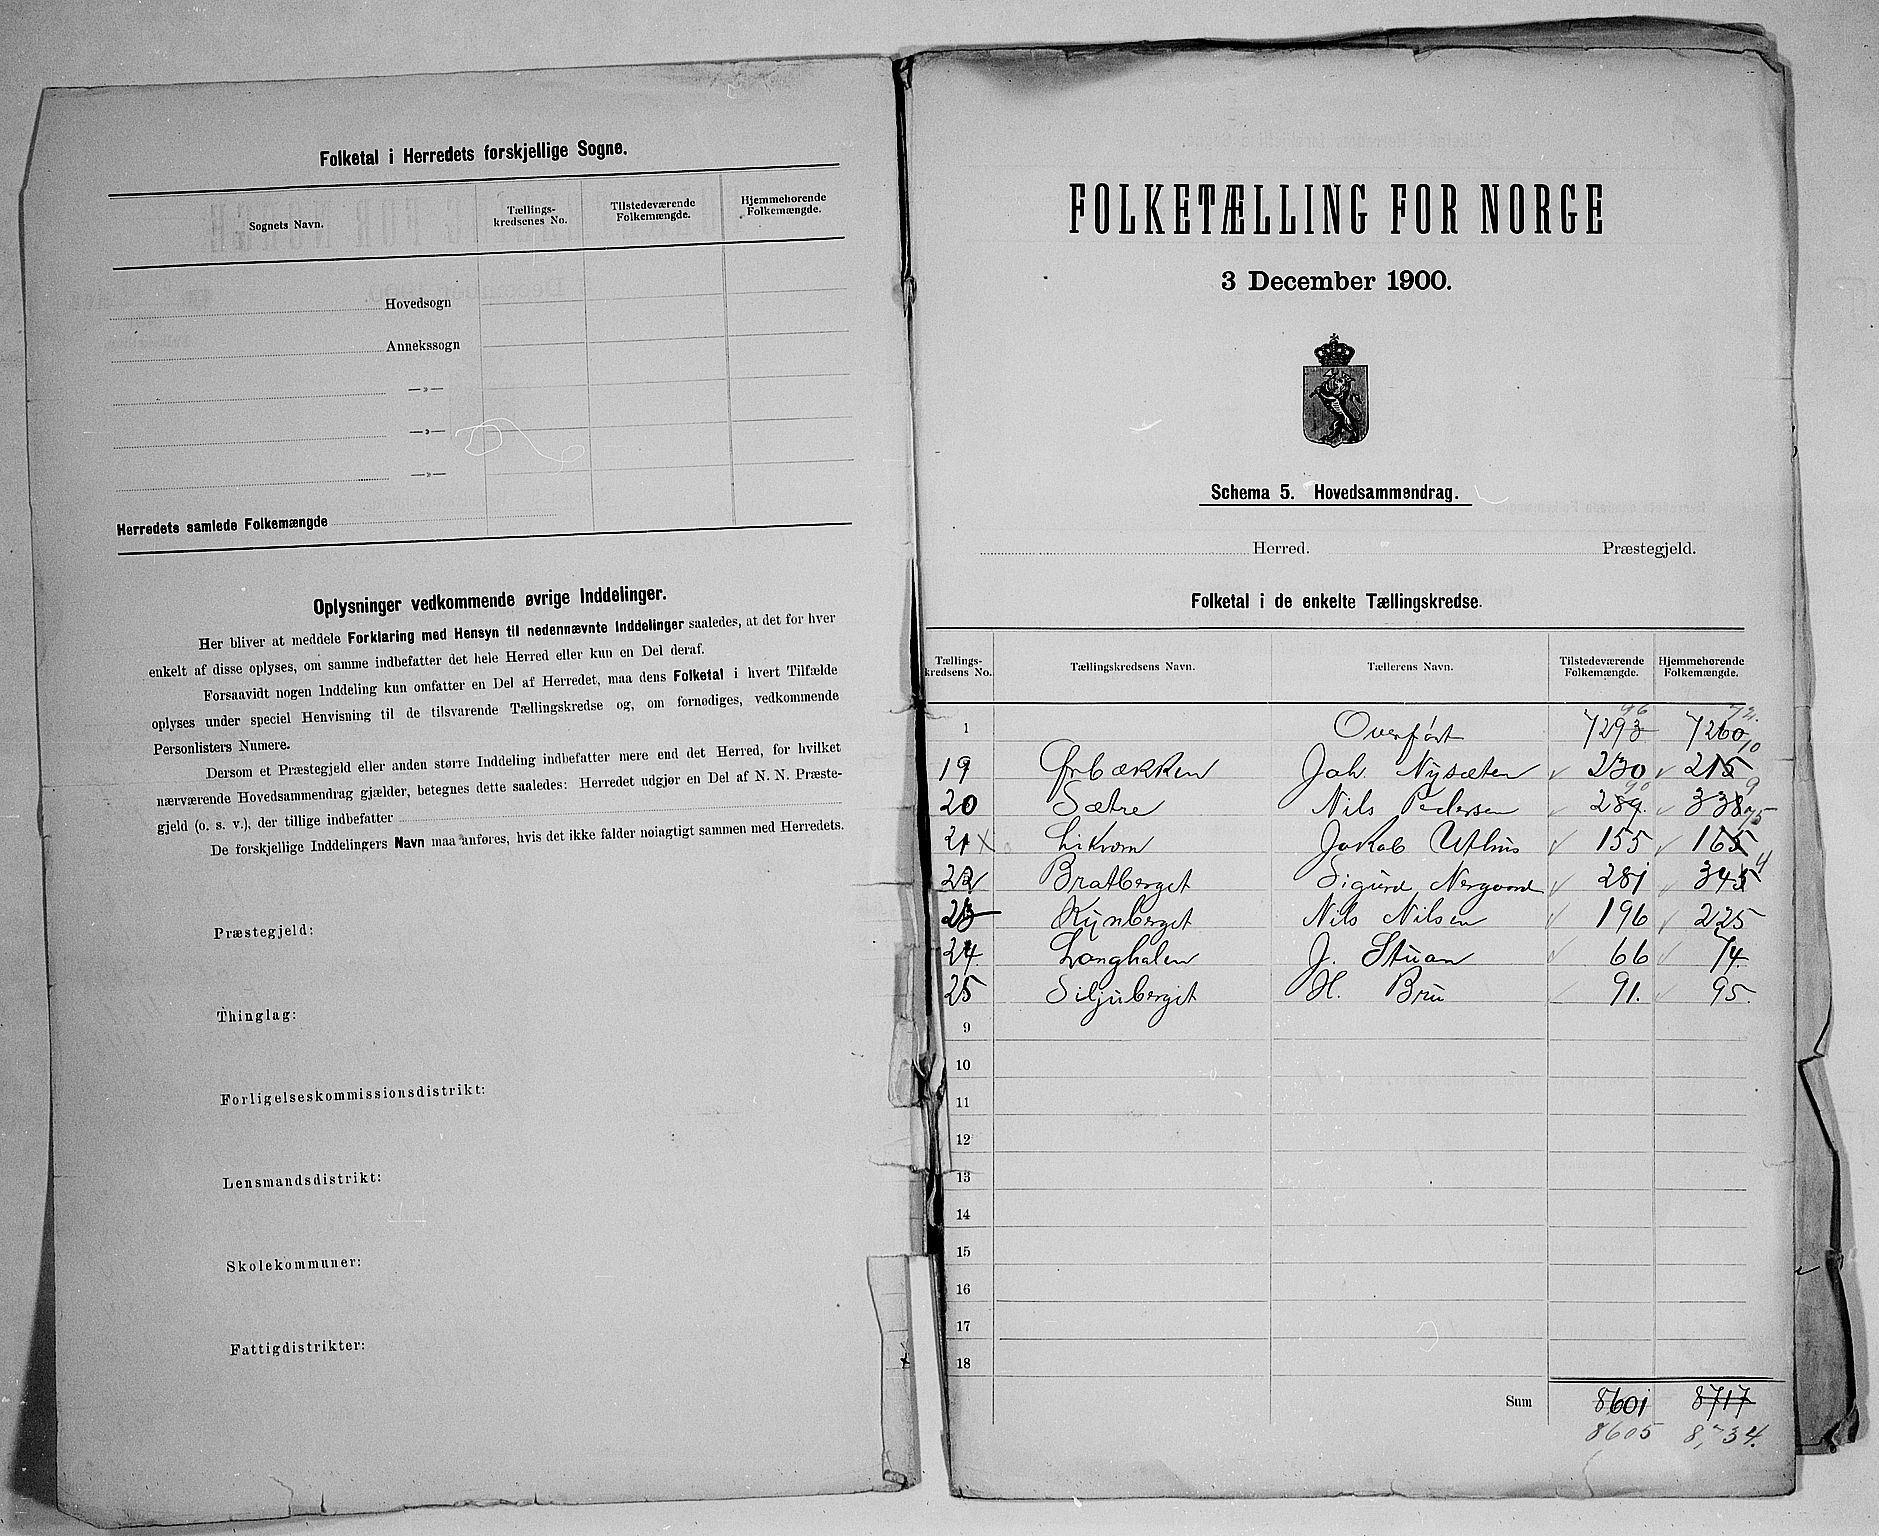 Folketal i Herredets forskjellige Sogne.
Sognets Navn. Tællings-kredsenes No. Tilstedeværende Folkemængde. Hjemmehørende Folkemængde.
Hovedsogn
Annekssogn
—»—
—»—
—»—
Herredets samlede Folkemængde
Oplysninger vedkommende øvrige Inddelinger.
Her bliver at meddele Forklaring med Hensyn til nedennævnte Inddelinger saaledes, at det for hver
enkelt af disse oplyses, om samme indbefatter det hele Herred eller kun en Del deraf.
Forsaavidt nogen Inddeling kun omfatter en Del af Herredet, maa dens Folketal i hvert Tilfælde
oplyses under speciel Henvisning til de tilsvarende Tællingskredse og, om fornødiges, vedkommende
Personlisters Numere.
Dersom et Præstegjeld eller anden større Inddeling indbefatter mere end det Herred, for hvilket
nærværende Hovedsammendrag gjælder, betegnes dette saaledes: Herredet udgjør en Del af N. N. Præste-
gjeld (o. s. v.), der tillige indbefatter
De forskjellige Inddelingers Navn maa anføres, hvis det ikke falder nøiagtigt sammen med Herredets.
Præstegjeld:
Thinglag:
Forligelseskommissionsdistrikt:
Lensmandsdistrikt:
Skolekommuner:
Fattigdistrikter:
FOLKETÆLLING FOR NORGE
3 December 1900.
Schema 5. Hovedsammendrag.
Herred. Præstegjeld.
Folketal i de enkelte Tællingskredse.
Tællings-kredsens No. Tællingskredsens Navn. Tællerens Navn. Tilstedeværende Folkemængde. Hjemmehørende Folkemængde.
1 Overført 7293 96 7260
19 Ørbækken Joh. Nysæten 230 215 10
20 Sætre Nils Pedersen 289. 90 338 9
21 Likvorn Jakob Uthus 155 165 75
22 Bratberget Sigurd Nergaard 281 345 4
23 Kynberget Nils Nilsen 196 225
24. Langhalen J. Stuan 66 74.
25 Siljuberget H. Bru 91. 95.
9
10
11
12
13
14
15
16
17
18
Sum 8601 8717
8605 8,734.